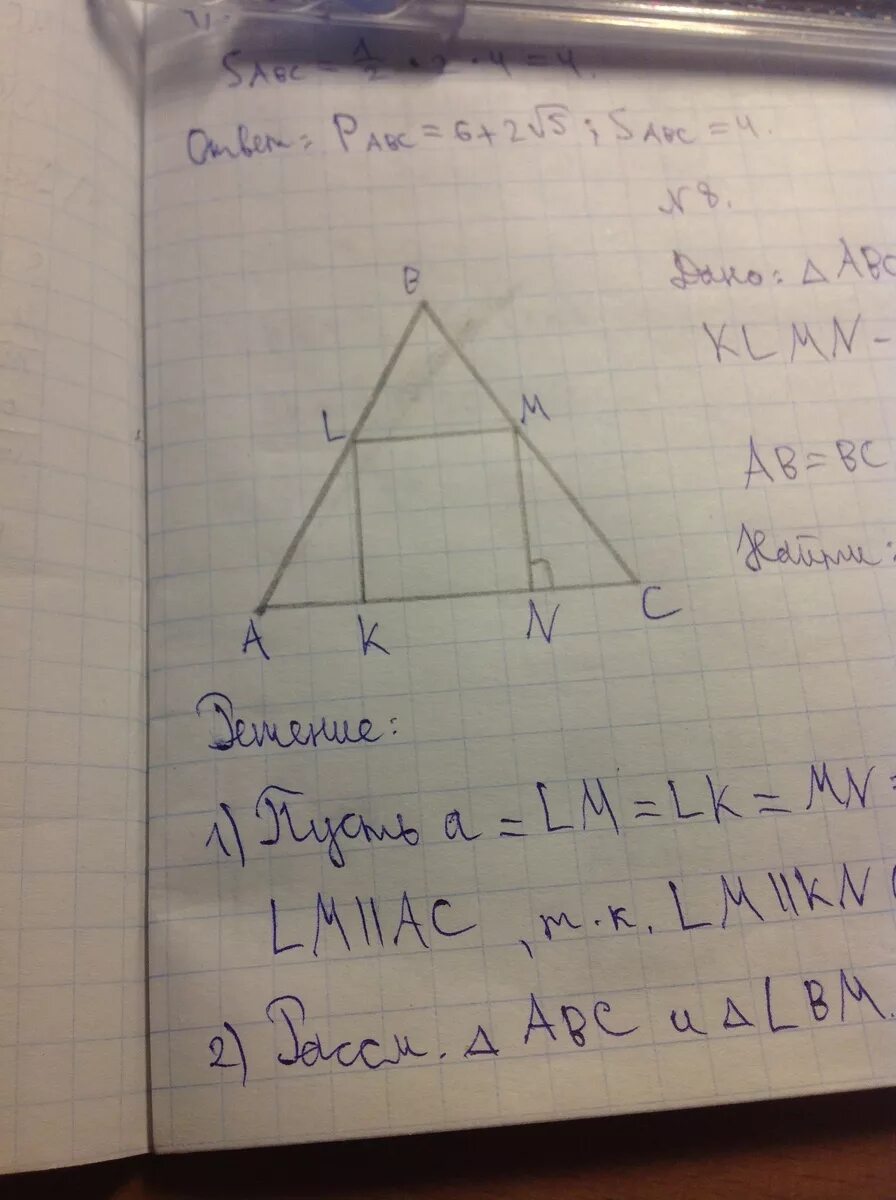 S ABC = 1/2 • 2 • 4 = 4.
Ответ: P ABC = 6 + 2√5 ; S ABC = 4.
N 8.
Дано: △ ABC
KLMN -
AB = BC
Найти:
B
L
M
A
K
N
C
Решение:
1) Пусть a = LM = LK = MN =
LM || AC , т.к. LM || KN (
2) Рассм. △ ABC и △ LBM.